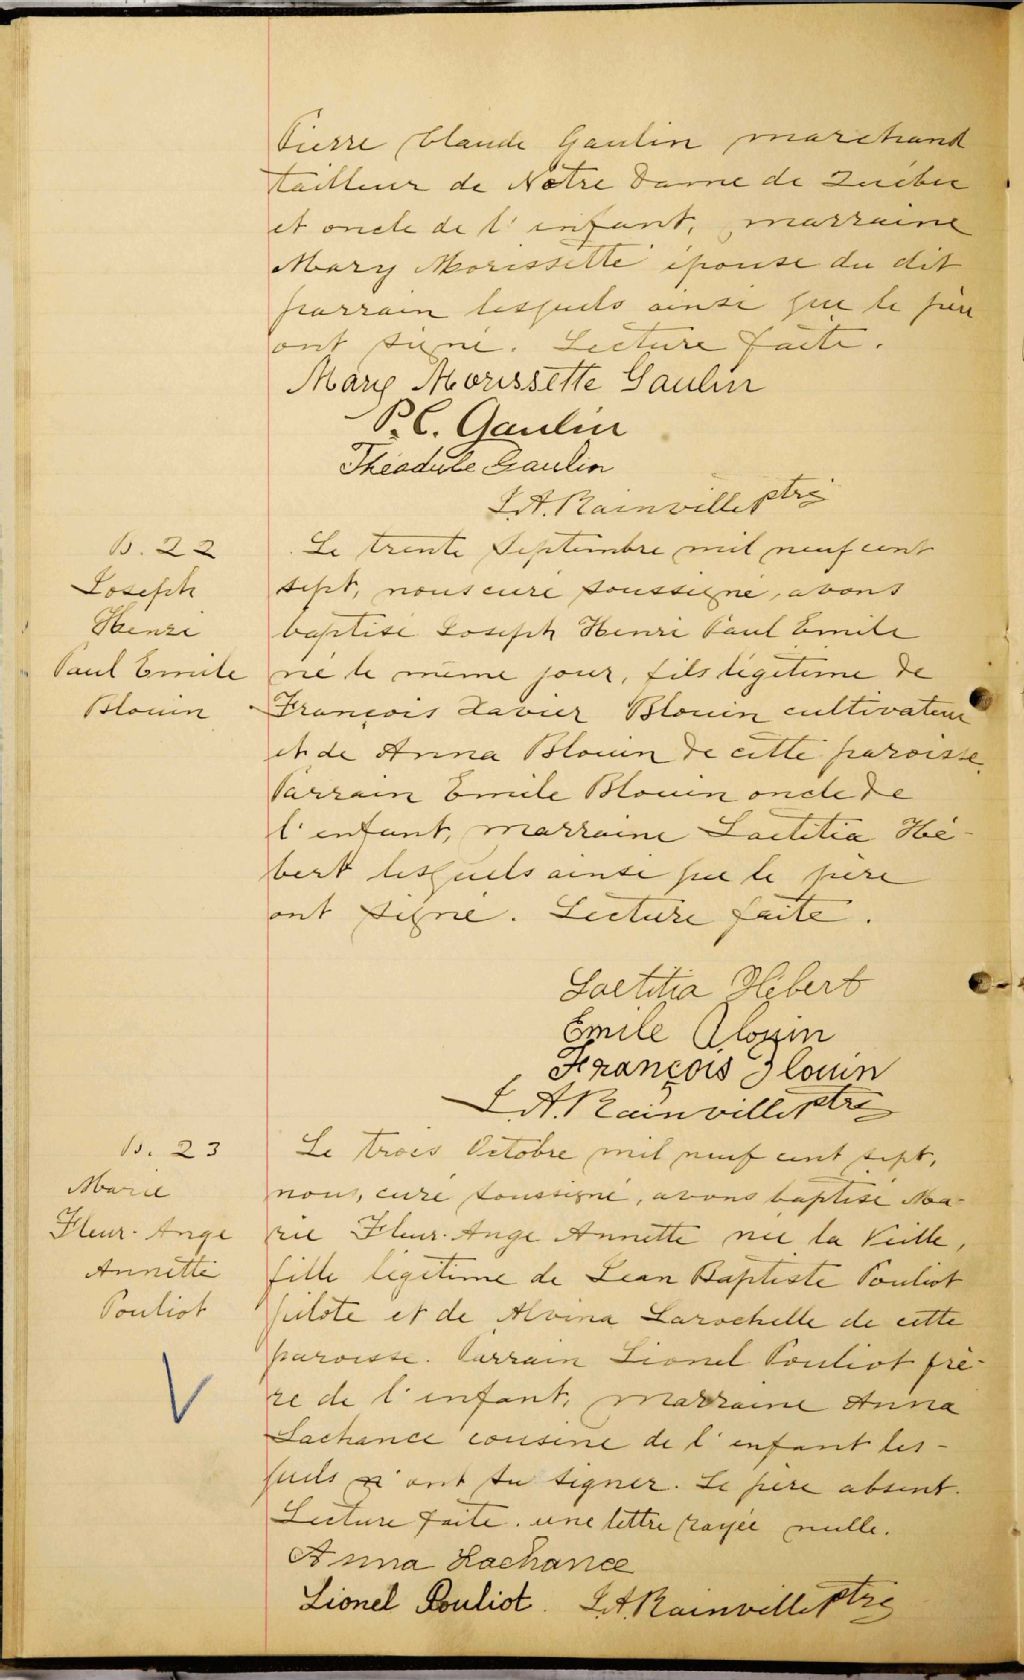 Pierre Claude Gaulin marchand
tailleur de Notre Dame de Québec
et oncle de l'enfant, marraine
Mary Morissette épouse du dit
parrain lesquels ainsi que le père
ont signé. Lecture faite.
Mary Morissette Gaulin
P. C. Gaulin
Théodule Gaulin
J. A. Rainville ptre
B. 22
Joseph
Henri
Paul Emile
Blouin
Le trente Septembre mil neuf cent
sept, nous curé soussigné, avons
baptisé Joseph Henri Paul Emile
né le même jour, fils légitime de
François Xavier Blouin cultivateur
et de Anna Blouin de cette paroisse.
Parrain Emile Blouin oncle de
l'enfant, marraine Laetitia Hé-
bert lesquels ainsi que le père
ont signé. Lecture faite.
Laetitia Hébert
Emile Blouin
François Blouin
J. A. Rainville ptre
B. 23
Marie
Fleur-Ange
Annette
Pouliot
Le trois Octobre mil neuf cent sept,
nous, curé soussigné, avons baptisé Ma-
rie Fleur-Ange Annette née la veille,
fille légitime de Jean Baptiste Pouliot
pilote et de Alvina Larochelle de cette
paroisse. Parrain Lionel Pouliot frè-
re de l'enfant, marraine Anna
Lachance cousine de l'enfant les-
quels n'ont su signer. Le père absent.
Lecture faite. une lettre rayée nulle.
Anna Lachance
Lionel Pouliot J. A. Rainville ptre